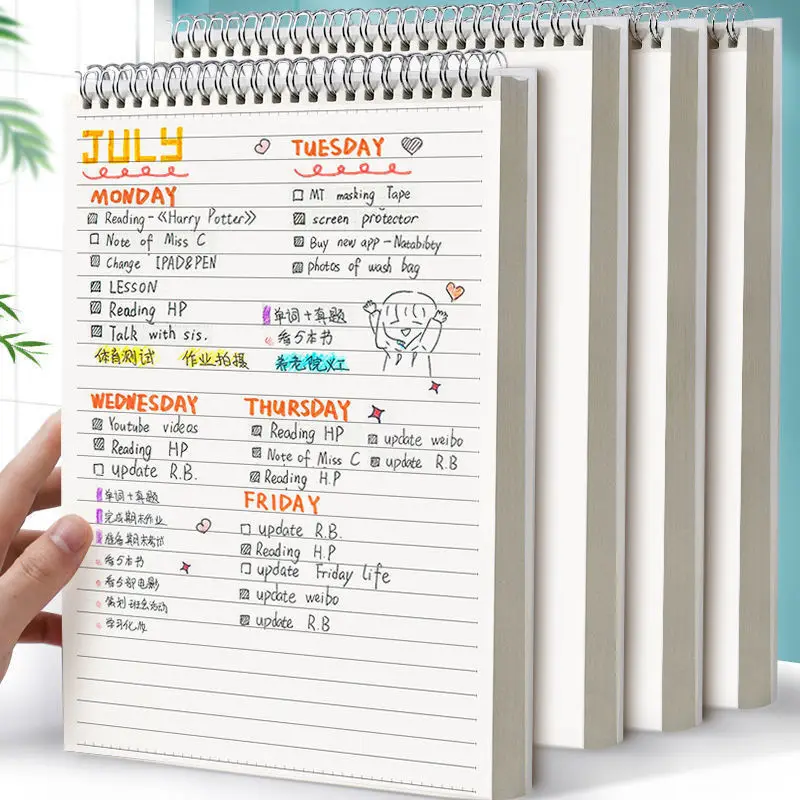 JULY
MONDAY
Reading-《Harry Potter》
Note of Miss C
Change IPAD&PEN
LESSON
Reading HP
Talk with sis.
TUESDAY
MT masking Tape
screen protector
Buy new app-Natabibty
photos of wash bag
单词+真题
看5本书
体育测试 作业拍摄 养老院义工
WEDNESDAY
Youtube videos
Reading HP
update R.B.
THURSDAY
Reading HP update weibo
Note of Miss C update R.B
Reading H.P
单词+真题
完成期末作业
准备期末考试
看5本书
看5部电影
策划班会活动
学习化妆
FRIDAY
update R.B.
Reading H.P
update Friday life
update weibo
update R.B